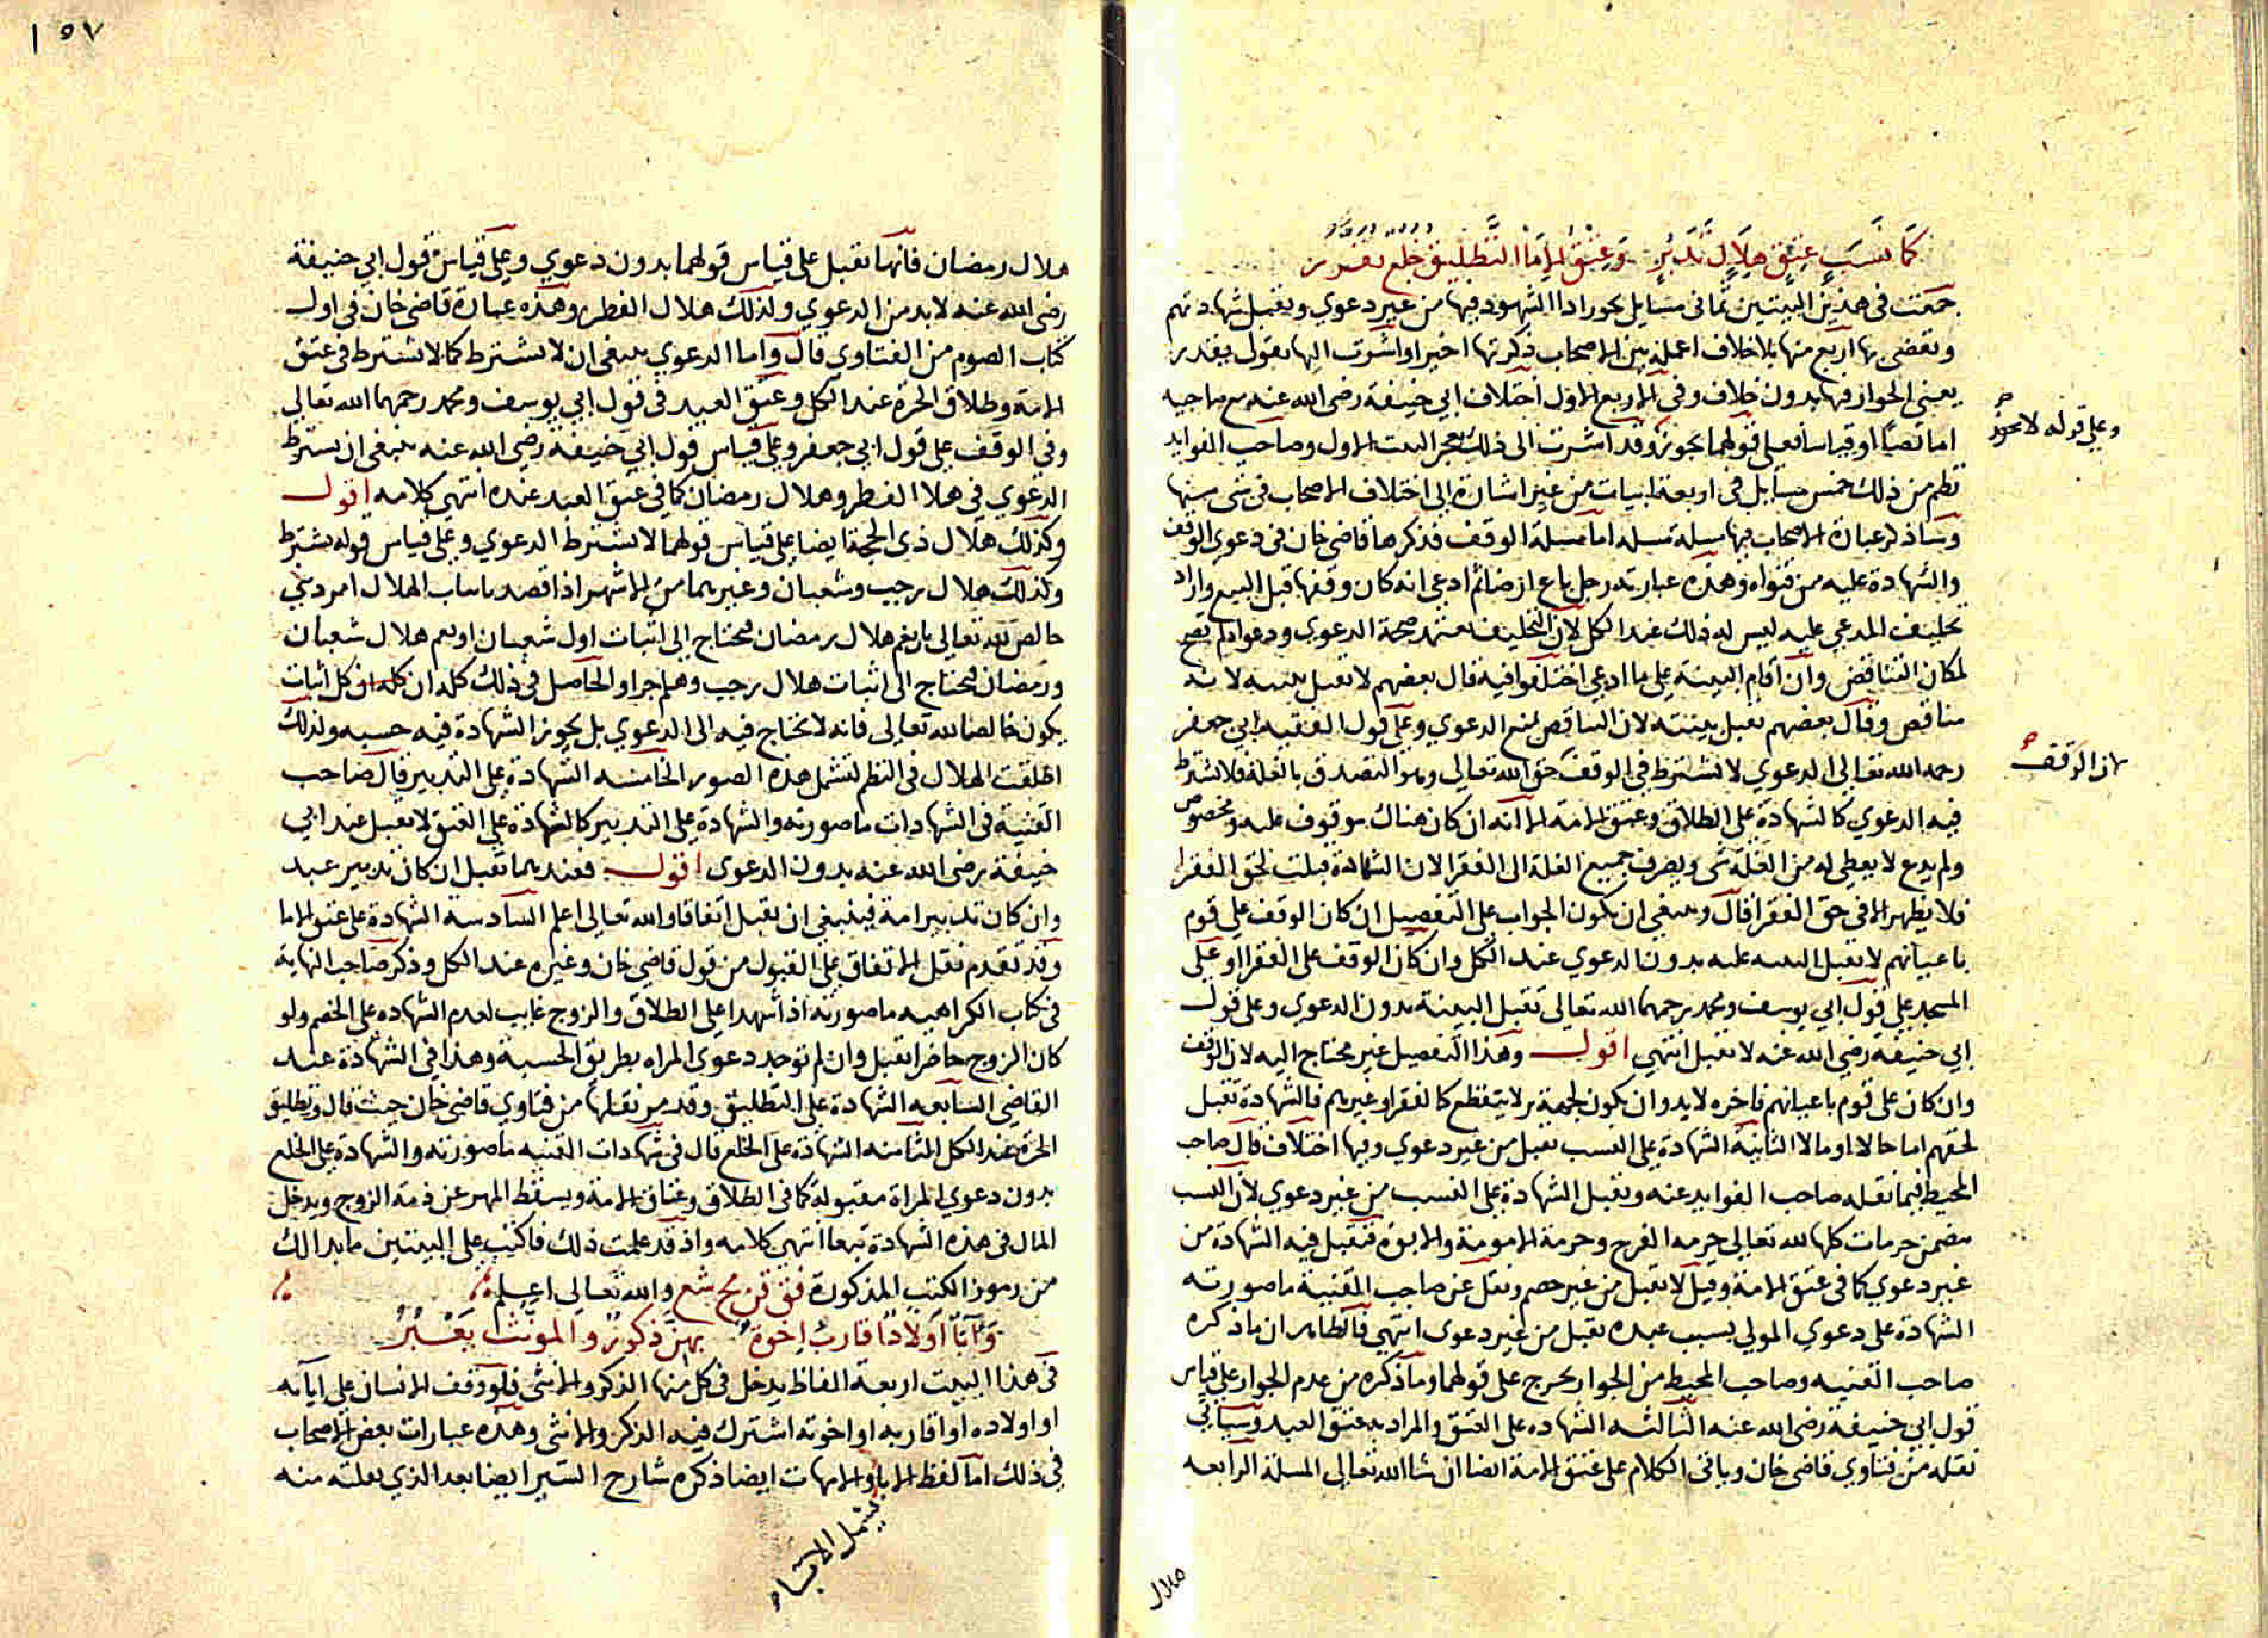 كما نسب عتق هلال تدبر وعتق الاماء التطليق خلع تقرر
جمعت في هذين البيتين ثماني مسايل يجوز اداا الشهود فيها من غير دعوي وتقبل شهادتهم
وتقضى بها اربع منها بلا خلاف اعمله بين الاصحاب ذكرتها اخيرا واشرت اليها بقول يقدر
يعني الجواز فيها بدون خلاف وفي الاربع الاول اختلاف ابي حنيفة رضى الله عنه مع صاحبيه
اما نصا او قياسا فعلى قولهما يجوز وقد اشرت الى ذلك بعجز البيت الاول وصاحب الفوايد
وعلى قوله لا يجوز
نظم من ذلك خمس مسايل في اربعة ابيات من غير اشارة الى اختلاف الاصحاب في شي منها
وساذكر عبارة الاصحاب فيها مسلة مسله اما مسلة الوقف فذكرها قاضي خان في دعوي الوقف
والشهادة عليه من فتواه وهذه عبارته رجل باع ارضا ثم ادعي انه كان وقفها قبل البيع واراد
تحليف المدعي عليه ليس له ذلك عند الكل لان التحليف يعتمد صحة الدعوي ودعواه لم تصح
لمكان التناقض وان اقام البينة على ما ادعي اختلفوا فيه قال بعضهم لا تقبل بينته لانه
مناقض وقال بعضهم تقبل بينته لان التناقض لمنع الدعوي وعلى قول الفقيه ابي جعفر
رحمه الله تعالى الدعوي لا تشترط في الوقف حق الله تعالي وهو التصدق بالغلة فلا تشترط
لان الوقف
فيه الدعوي كالشهادة على الطلاق وعتق الامة الا انه ان كان هناك موقوف عليه ومخصوص
ولم يدع لا يعطى له من الغلة شي ويصرف جميع الغلة الى الفقرا لان الشهادة قبلت لحق الفقرا
فلا يظهر الا في حق الفقرا قال وينبغي ان يكون الجواب على التفصيل ان كان الوقف على قوم
باعيانهم لا تقبل البينه عليه بدون الدعوي عند الكل وان كان الوقف على الفقرا او على
المسجد على قول ابي يوسف ومحمد رحمهما الله تعالى تقبل البينة بدون الدعوي وعلى قول
ابي حنيفة رضي الله عنه لا تقبل انتهي اقول وهذا التفصيل غير محتاج اليه لان الوقف
وان كان على قوم باعيانهم فاخره لا بد وان يكون لجهة بر لا ينقطع كالفقرا وغيرهم فالشهادة تقبل
لحقهم اما حالا او مالا الثانية الشهادة على النسب تقبل من غير دعوي وفيها اختلاف قال صاحب
المحيط فيما نقله صاحب الفوايد عنه وتقبل الشهادة على النسب من غير دعوي لان النسب
يتضمن حرمات كلها لله تعالى حرمه الفرج وحرمة الامومة والابوة فتقبل فيه الشهادة من
غير دعوي كما في عتق الامة وقيل لا تقبل من غير خصم ونقل عن صاحب القنية ما صورته
الشهادة على دعوي المولي بسبب عبده تقبل من غير دعوى انتهي فالظاهر ان ما ذكره
صاحب القنيه وصاحب المحيط من الجواز يخرج على قولهما وما ذكره من عدم الجواز على قياس
قول ابي حنيفة رضى الله عنه الثالثه الشهاده على العتق والمراد به عتق العبد وسياتي
نقله من فتاوي قاضي خان وباقى الكلام على عتق الامة ايضا ان شا الله تعالي المسلة الرابعه
هلال
١٥٧
هلال رمضان فانها تقبل على قياس قولهما بدون دعوي وعلى قياس قول ابي حنيفة
رضى الله عنه لا بد من الدعوي وكذلك هلال الفطر وهذه عبارة قاضي خان في اول
كتاب الصوم من الفتاوي قال واما الدعوي ينبغي ان لا يشترط كما لا يشترط في عتق
الامة وطلاق الحرة عند الكل وعتق العبد في قول ابي يوسف ومحمد رحمهما الله تعالى
وفي الوقف على قول ابي جعفر وعلى قياس قول ابي حنيفه رضي الله عنه ينبغي ان يشترط
الدعوي في هلا الفطر وهلال رمضان كما في عتق العبد عنده انتهى كلامه اقول
وكذلك هلال ذى الحجة ايضا على قياس قولهما لا يشترط الدعوي وعلى قياس قوله يشترط
وكذلك هلال رجب وشعبان وغيرهما من الاشهر اذا قصد باثبات الهلال امر ديني
خالص لله تعالى بان غم هلال رمضان فيحتاج الى اثبات اول شعبان او غم هلال شعبان
ورمضان فيحتاج الى اثبات هلال رجب وهلم جرا والحاصل في ذلك كله ان كله ان كل اثبات
يكون خالصا لله تعالى فانه لا يحتاج فيه الى الدعوي بل يجوز الشهادة فيه حسبه ولذلك
اطلقت الهلال في النظم لتشمل هذه الصور الخامسه الشهادة على التدبير قال صاحب
القنية في الشهادات ما صورته والشهادة على التدبير كالشهادة على العتق لا تقبل عند ابي
حنيفة رضى الله عنه بدون الدعوى اقول فعندهما تقبل ان كان تدبير عبد
وان كان تدبير امة فينبغي ان يقبل اتفاقا والله تعالى اعلم السادسة الشهادة على عتق الاما
وقد تقدم نقل الاتفاق على القبول من قول قاضي خان وغيره عند الكل وذكر صاحب النهاية
في كتاب الكراهيه ما صورته اذا شهدا على الطلاق والزوج غايب لعدم الشهاده على الخصم ولو
كان الزوج حاضرا تقبل وان لم توجد دعوى المراه بطريق الحسبة وهذا في الشهادة عند
القاضي السابعه الشهادة على التطليق وقد مر نقلها من فتاوي قاضي خان حيث قال وتطليق
الحرة عند الكل الثامنه الشهادة على الخلع قال في شهادات القنيه ما صورته والشهادة على الخلع
بدون دعوي المراة مقبولة كما في الطلاق وعتاق الامة ويسقط المهر عن ذمة الزوج ويدخل
المال في هذه الشهادة تبعا انتهى كلامه واذ قد علمت ذلك فاكتب على البيتين ما بدا لك
من رموز الكتب المذكورة فق قن مح شع والله تعالى اعلم
وآبا اولادا قارب اخوة بهن ذكور والمونث يعبر
في هذا البيت اربعة الفاظ يدخل في كل منها الذكر والانثى فلو وقف الانسان على ابآئه
او اولاده او اقاربه او اخوته اشترك فيه الذكر والانثى وهذه عبارات بعض الاصحاب
في ذلك اما لفظ الابا والامهات ايضا ذكره شارح السير ايضا بعد الذي نقلته منه
يشمل الانساء